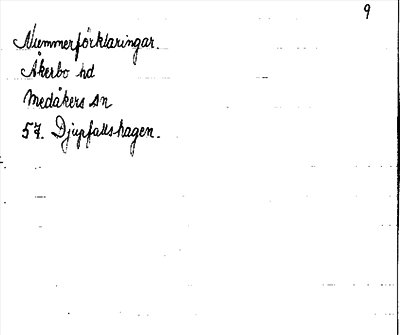 9
Nummerförklaringar.
Åkerbo hd
Medåkers sn
57. Djupfallshagen.